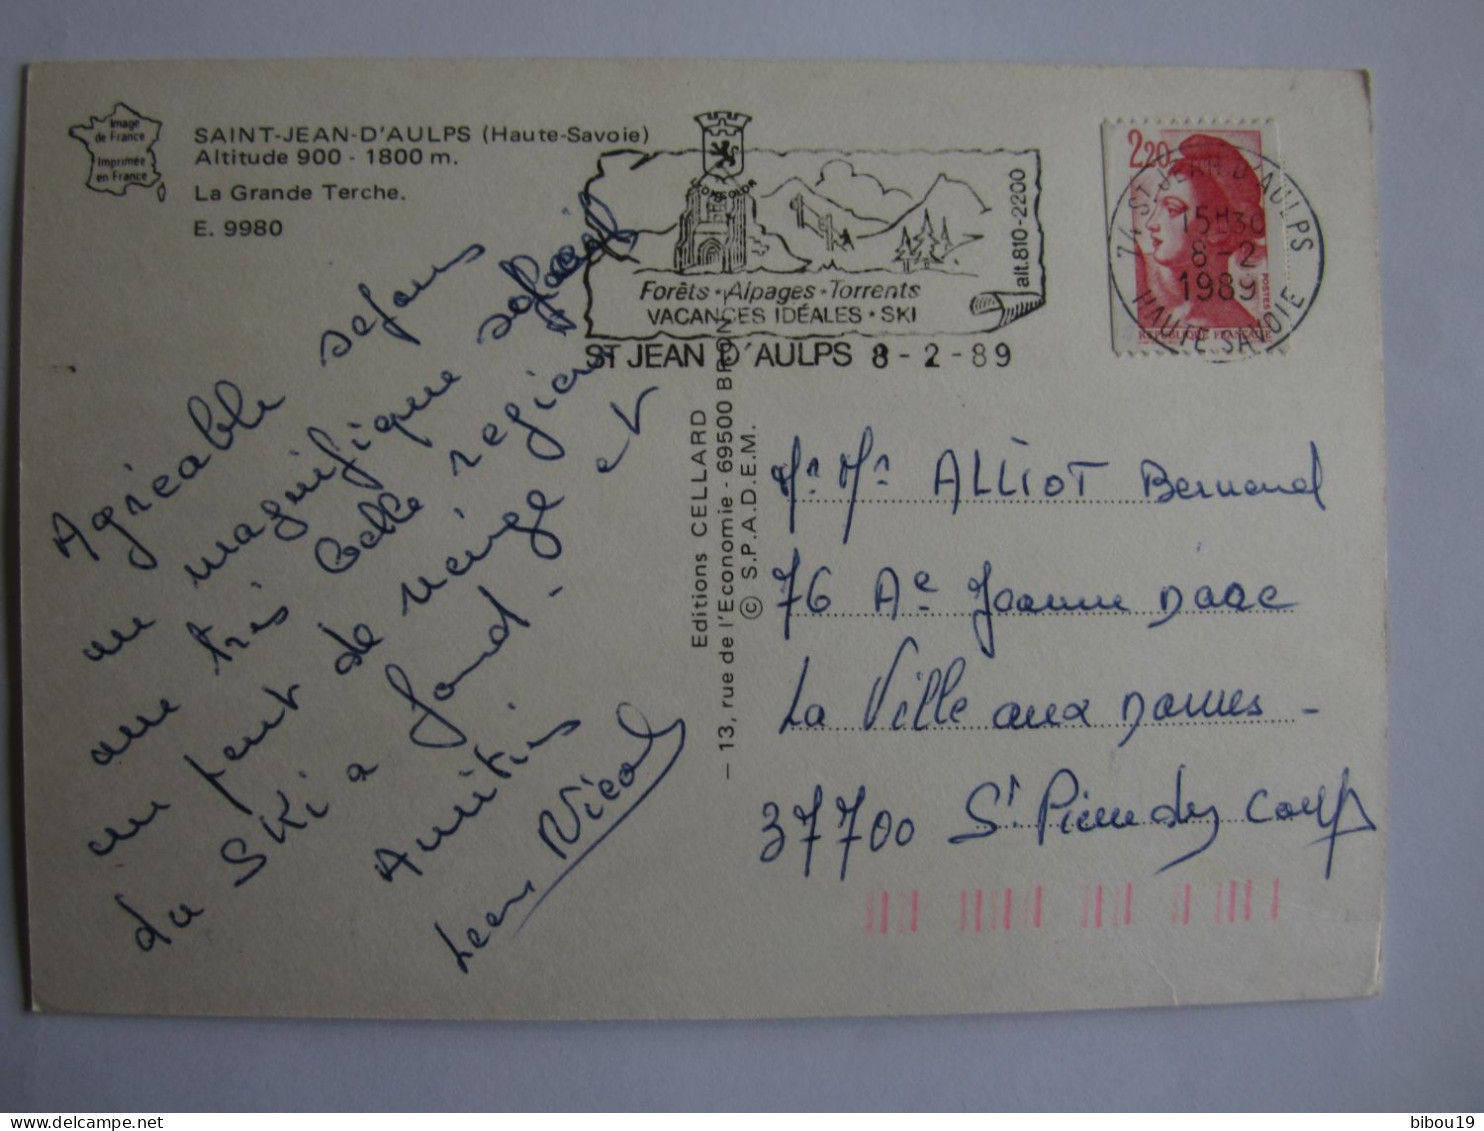 Image
de France
Imprimée
en France
SAINT-JEAN-D'AULPS (Haute-Savoie)
Altitude 900 - 1800 m.
La Grande Terche.
E. 9980
Forêts • Alpages • Torrents
VACANCES IDÉALES • SKI
alt. 810-2200
ST JEAN D'AULPS 8 - 2 - 89
2,20
POSTES
REPUBLIQUE FRANÇAISE
74 ST JEAN D'AULPS
15H30
8 - 2
1989
HAUTE SAVOIE
Agréable sejour
au magnifique soleil
une très belle region
un peut de neige et
du SKi a fond -
Amitiés
Nicol
Editions CELLARD
– 13, rue de l'Economie - 69500 BRON
© S.P.A.D.E.M.
Mr Mr ALLIOT Bernard
76 Ae Jeanne Darc
La Ville aux Dames -
37700 St Pierre des Corps
bibou19